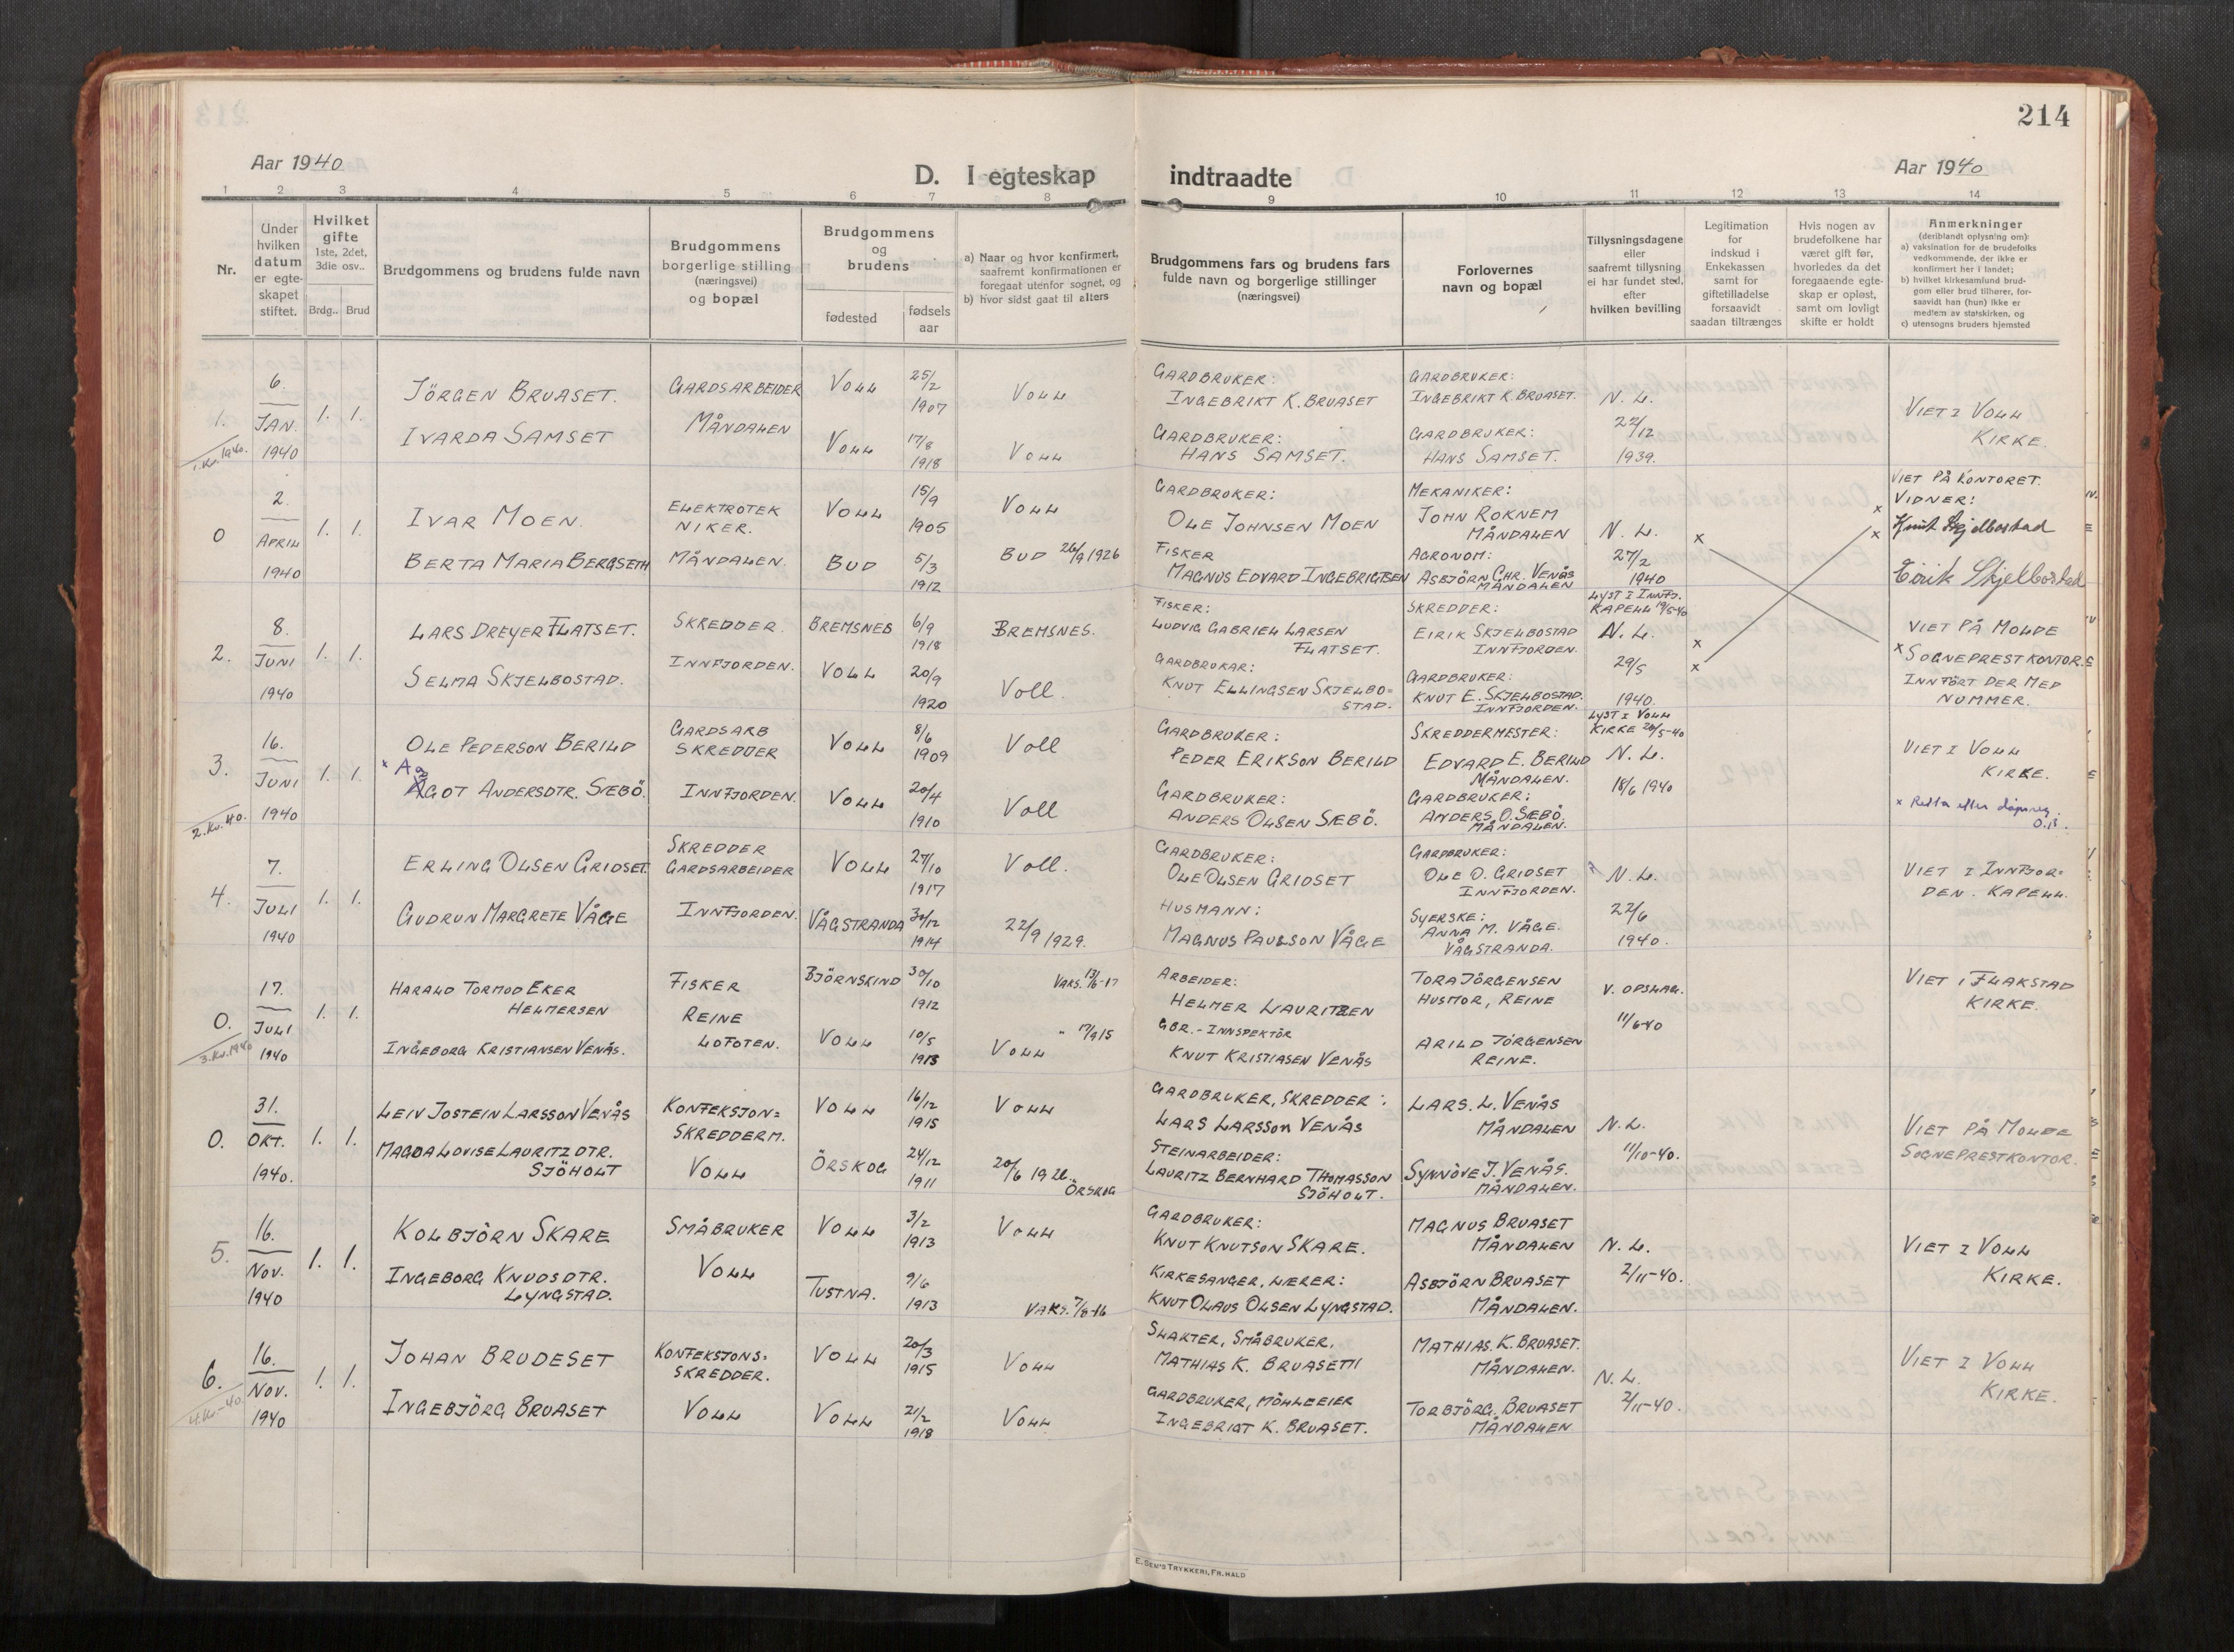 214
Aar 1940
D. I egteskap indtraadte
Aar 1940
1 2 3 4 5 6 7 8 9 10 11 12 13 14
Nr.
Under
hvilken
datum
er egte-
skapet
stiftet.
Hvilket
gifte
1ste, 2det,
3die osv..
Brdg.. Brud
Brudgommens og brudens fulde navn
Brudgommens
borgerlige stilling
(næringsvei)
og bopæl
Brudgommens
og
brudens
fødested
fødsels
aar
a) Naar og hvor konfirmert,
saafremt konfirmationen er
foregaat utenfor sognet, og
b) hvor sidst gaat til alters
Brudgommens fars og brudens fars
fulde navn og borgerlige stillinger
(næringsvei)
Forlovernes
navn og bopæl
Tillysningsdagene
eller
saafremt tillysning
ei har fundet sted,
efter
hvilken bevilling
Legitimation
for
indskud i
Enkekassen
samt for
giftetilladelse
forsaavidt
saadan tiltrænges
Hvis nogen av
brudefolkene har
været gift før,
hvorledes da det
foregaaende egte-
skap er opløst,
samt om lovligt
skifte er holdt
Anmerkninger
(deriblandt oplysning om):
a) vaksination for de brudefolks
vedkommende, der ikke er
konfirmert her i landet;
b) hvilket kirkesamfund brud-
gom eller brud tilhører, for-
saavidt han (hun) ikke er
medlem av statskirken, og
c) utensogns bruders hjemsted
1.
1.Kv.1940.
6.
JAN.
1940
1. 1.
JÖRGEN BRUASET.
IVARDA SAMSET
GARDSARBEIDER
MÅNDALEN
VOLL 25/2 1907 VOLL
VOLL 17/8 1918 VOLL
GARDBRUKER:
INGEBRIKT K. BRUASET
GARDBRUKER:
HANS SAMSET.
GARDBRUKER:
INGEBRIKT K. BRUASET.
GARDBRUKER:
HANS SAMSET.
N. L.
22/12
1939.
VIET I VOLL
KIRKE.
0
2
APRIL
1940
1. 1.
IVAR MOEN.
BERTA MARIA BERGSETH
ELEKTROTEK
NIKER.
MÅNDALEN.
VOLL 15/9 1905 VOLL
BUD 5/3 1912 BUD 26/9 1926
GARDBRUKER:
OLE JOHNSEN MOEN
FISKER
MAGNUS EDVARD INGEBRIGTSEN
MEKANIKER:
JOHN ROKNEM
MÅNDALEN
AGRONOM:
ASBJÖRN CHR. VENÅS
MÅNDALEN
N. L.
27/2
1940
x
VIET PÅ KONTORET.
VIDNER:
x
x Knut Skjelbostad
Eirik Skjelbostad
2.
8.
JUNI
1940
1. 1.
LARS DREYER FLATSET.
SELMA SKJELBOSTAD.
SKREDDER.
INNFJORDEN.
BREMSNES 6/9 1918 BREMSNES.
VOLL 20/9 1920 Voll.
FISKER:
LUDVIG GABRIEL LARSEN
FLATSET.
GARDBRUKAR:
KNUT ELLINGSEN SKJELBO=
STAD.
SKREDDER:
EIRIK SKJELBOSTAD
INNFJORDEN.
GARDBRUKER:
KNUT E. SKJELBOSTAD.
INNFJORDEN.
LYST I INNFJ.
KAPELL 19/5-40
N. L.
29/5
1940.
x
x
VIET PÅ MOLDE
x SOGNEPRESTKONTOR.
INNFÖRT DER MED
NUMMER.
3.
2.Kv.40.
16.
JUNI
1940
1. 1.
OLE PEDERSON BERILD
x Aa
ÅGOT ANDERSDTR. SÆBÖ.
GARDSARB
SKREDDER
INNFJORDEN.
VOLL 8/6 1909 Voll
VOLL 20/4 1910 Voll
GARDBRUKER:
PEDER ERIKSON BERILD
GARDBRUKER:
ANDERS OLSEN SÆBÖ.
SKREDDERMESTER:
EDVARD E. BERILD
MÅNDALEN.
GARDBRUKER:
ANDERS O. SÆBÖ.
MÅNDALEN.
LYST I VOLL
KIRKE 26/5-40
N. L.
18/6 1940
VIET I VOLL
KIRKE.
x Retta etter dåpsreg.
O.B.
4.
7.
JULI
1940
1. 1.
ERLING OLSEN GRIDSET.
GUDRUN MARGRETE VÅGE
SKREDDER
GARDSARBEIDER
INNFJORDEN.
VOLL 27/10 1917 Voll.
VÅGSTRANDA 30/12 1914 22/9 1929.
GARDBRUKER:
OLE OLSEN GRIDSET
HUSMANN:
MAGNUS PAULSON VÅGE
GARDBRUKER:
OLE O. GRIDSET
INNFJORDEN.
SYERSKE:
ANNA M. VÅGE.
VÅGSTRANDA.
N. L.
22/6
1940.
VIET I INNFJOR=
DEN. KAPELL.
0.
3.Kv.1940
17.
JULI
1940
1. 1.
HARALD TORMOD EKER
HELMERSEN
INGEBORG KRISTIANSEN VENÅS.
FISKER
REINE
LOFOTEN.
BJÖRNSKIND 30/10 1912 VAKS. 13/6-17
VOLL 10/5 1913 VOLL " 17/9 15
ARBEIDER:
HELMER LAURITZEN
GBR.-INNSPEKTÖR
KNUT KRISTIASEN VENÅS
TORA JÖRGENSEN
HUSMOR, REINE
ARILD JÖRGENSEN
REINE.
V. OPSLAG.
11/6-40
VIET I FLAKSTAD
KIRKE.
0.
31.
OKT.
1940.
1. 1.
LEIV JOSTEIN LARSSON VENÅS
MAGDA LOVISE LAURITZ DTR.
SJÖHOLT
KONFEKSJON=
SKREDDERM.
VOLL
VOLL 16/12 1915 VOLL
ÖRSKOG 24/12 1911 20/6 1926.
ÖRSKOG
GARDBRUKER, SKREDDER:
LARS LARSSON VENÅS
STEINARBEIDER:
LAURITZ BERNHARD THOMASSON
SJÖHOLT.
LARS. L. VENÅS
MÅNDALEN
SYNNÖVE J. VENÅS.
MÅNDALEN.
N. L.
11/10-40.
VIET PÅ MOLDE
SOGNEPRESTKONTOR.
5.
16.
NOV.
1940
1. 1.
KOLBJÖRN SKARE
INGEBORG KNUDSDTR.
LYNGSTAD.
SMÅBRUKER
VOLL
VOLL 3/2 1913 VOLL
TUSTNA. 9/6 1913 VAKS. 7/8-16
GARDBRUKER:
KNUT KNUTSON SKARE.
KIRKESANGER, LÆRER:
KNUT OLAUS OLSEN LYNGSTAD.
MAGNUS BRUASET
MÅNDALEN
ASBJÖRN BRUASET
MÅNDALEN.
N. L.
2/11-40.
VIET I VOLL
KIRKE.
6.
4.Kv-40
16.
NOV.
1940
1. 1.
JOHAN BRUDESET
INGEBJÖRG BRUASET
KONFEKSJONS=
SKREDDER.
VOLL
VOLL 20/3 1915 VOLL
VOLL 21/2 1918 VOLL
SLAKTER, SMÅBRUKER,
MATHIAS K. BRUASET
GARDBRUKER, MÖLLEEIER
INGEBRIGT K. BRUASET.
MATHIAS. K. BRUASET.
MÅNDALEN.
TORBJÖRG. BRUASET
MÅNDALEN
N. L.
2/11-40.
VIET I VOLL
KIRKE.
TRYKKERI, FR. HALD